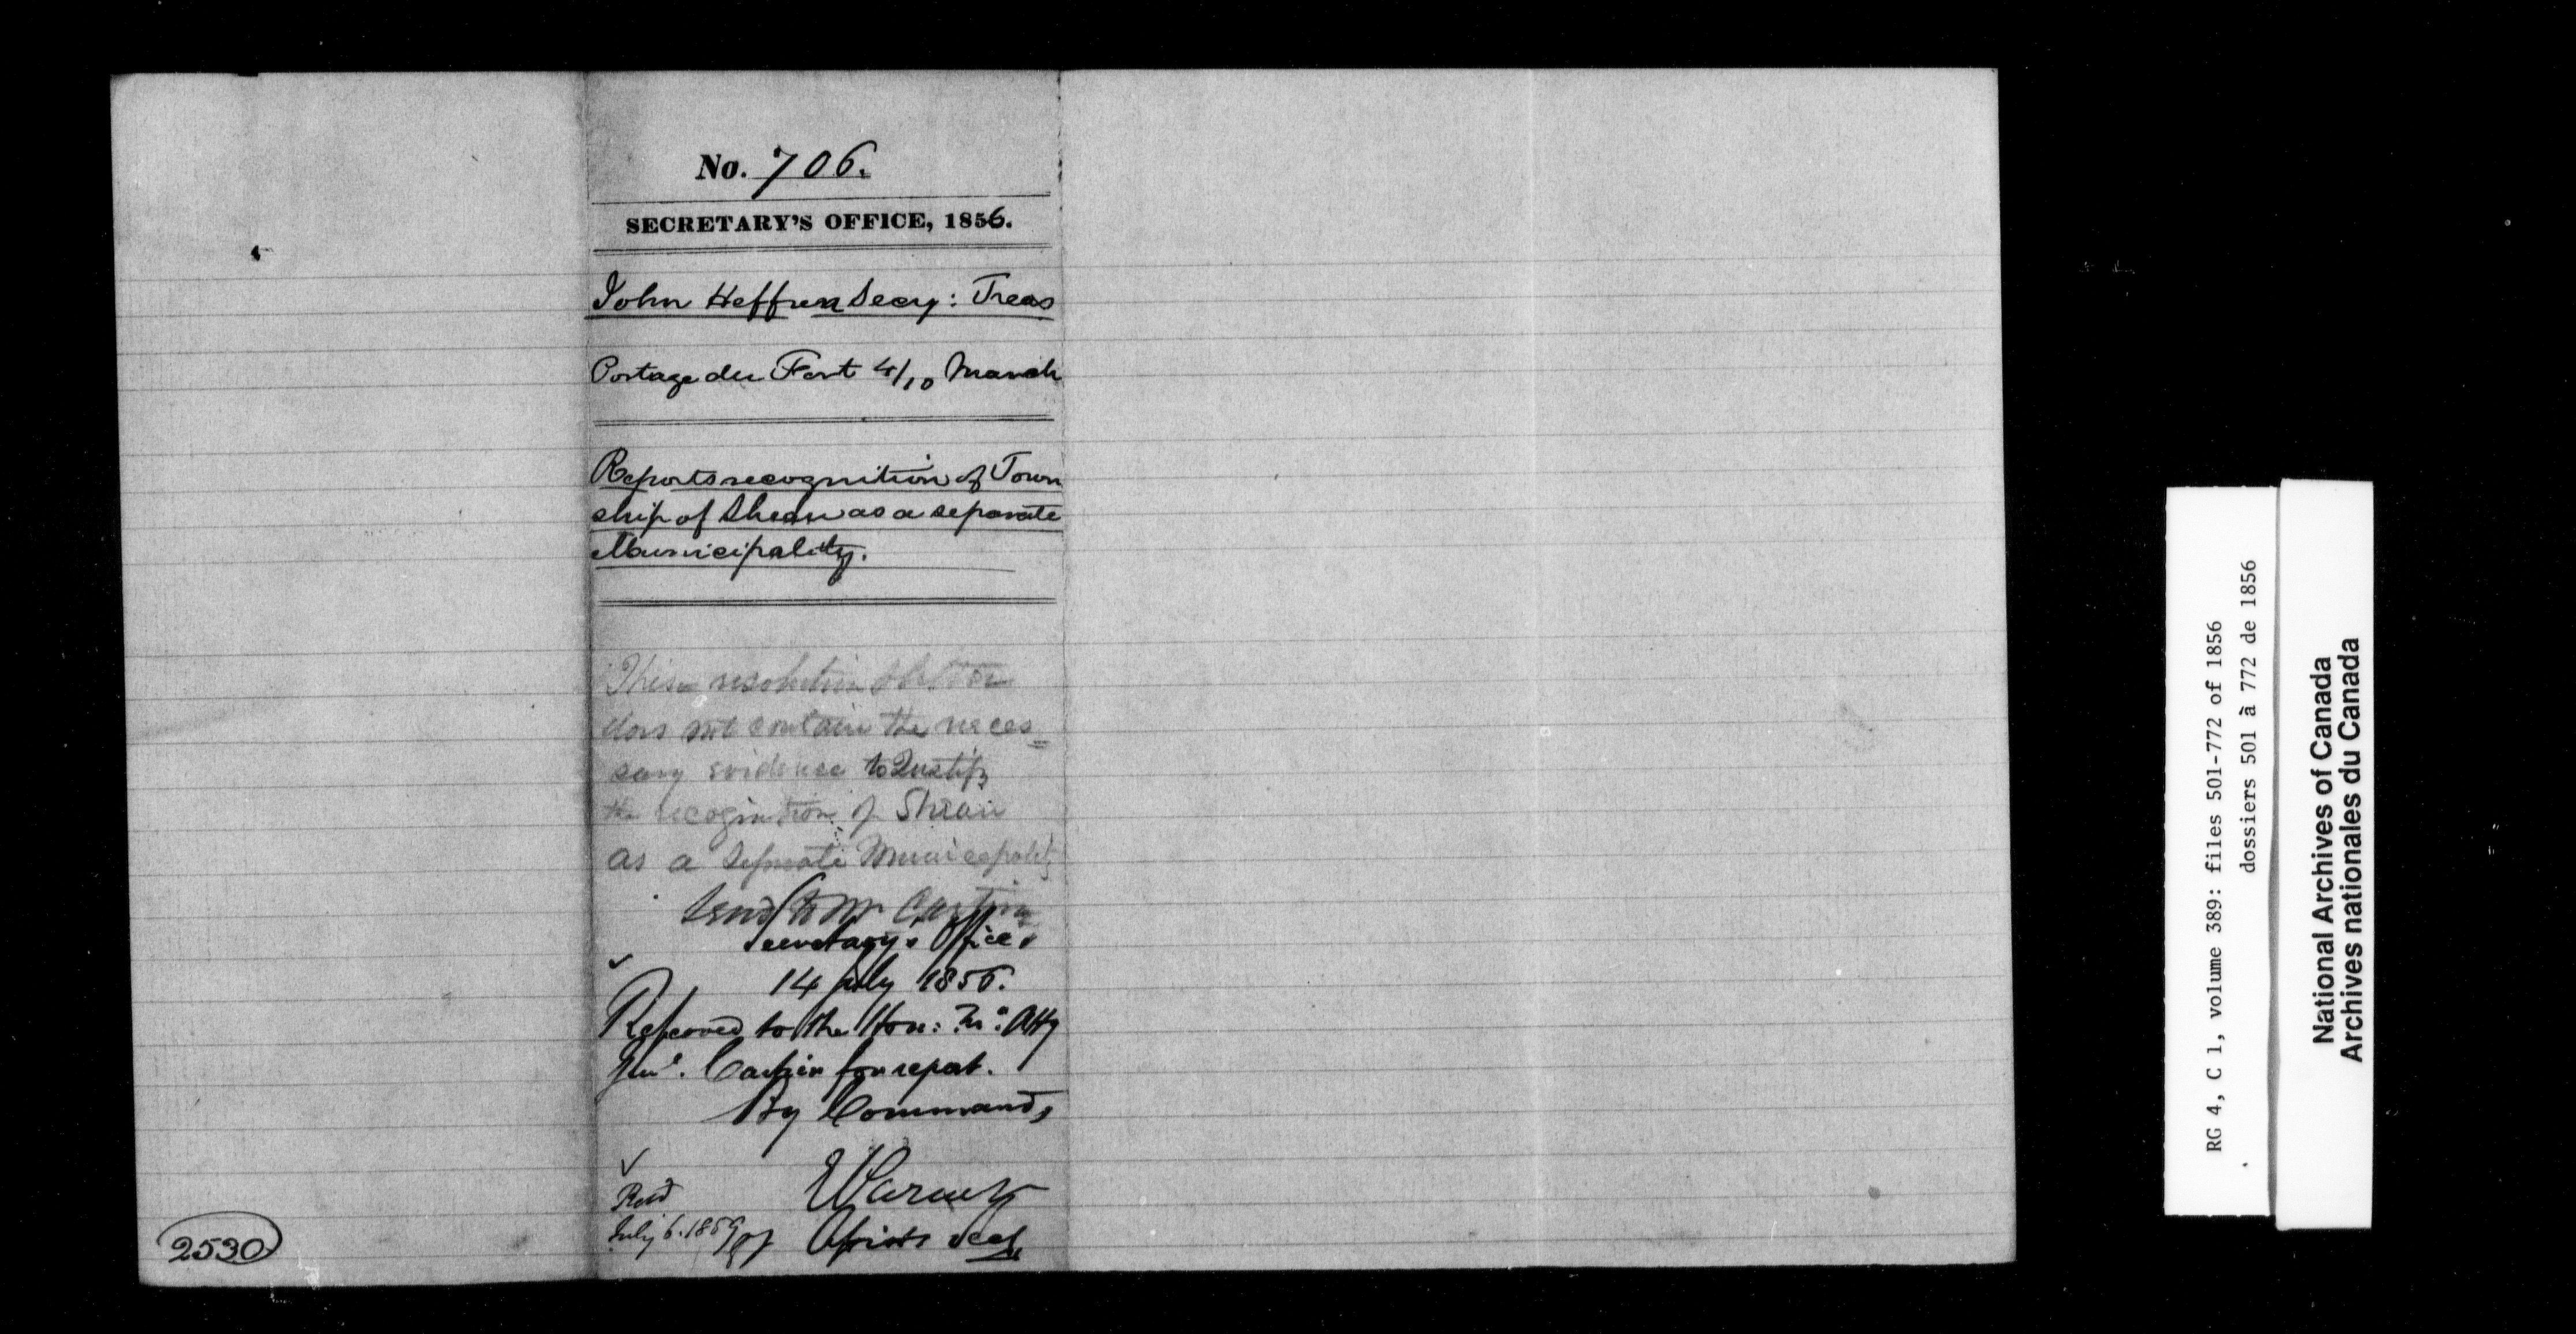 No. 706.
SECRETARY'S OFFICE, 1856.
John Heffren Secy: Treas
Portage du Fort 4/10 March
Reports recognition of Town
ship of Sheen as a separate
Municipality.
This resolution
does not contain the neces=
sary evidence to Justify
the recognition of Shean
as a Separate Municipality
Send to Mr Cartier
Secretary's Office,
14 July 1856.
Referred to the Hon: Mr. Atty
Genl. Cartier for report.
By Command,
E Parent
Assist Secy
Recd
July 6. 1859
2530
RG 4, C 1, volume 389: files 501-772 of 1856
dossiers 501 à 772 de 1856
National Archives of Canada
Archives nationales du Canada